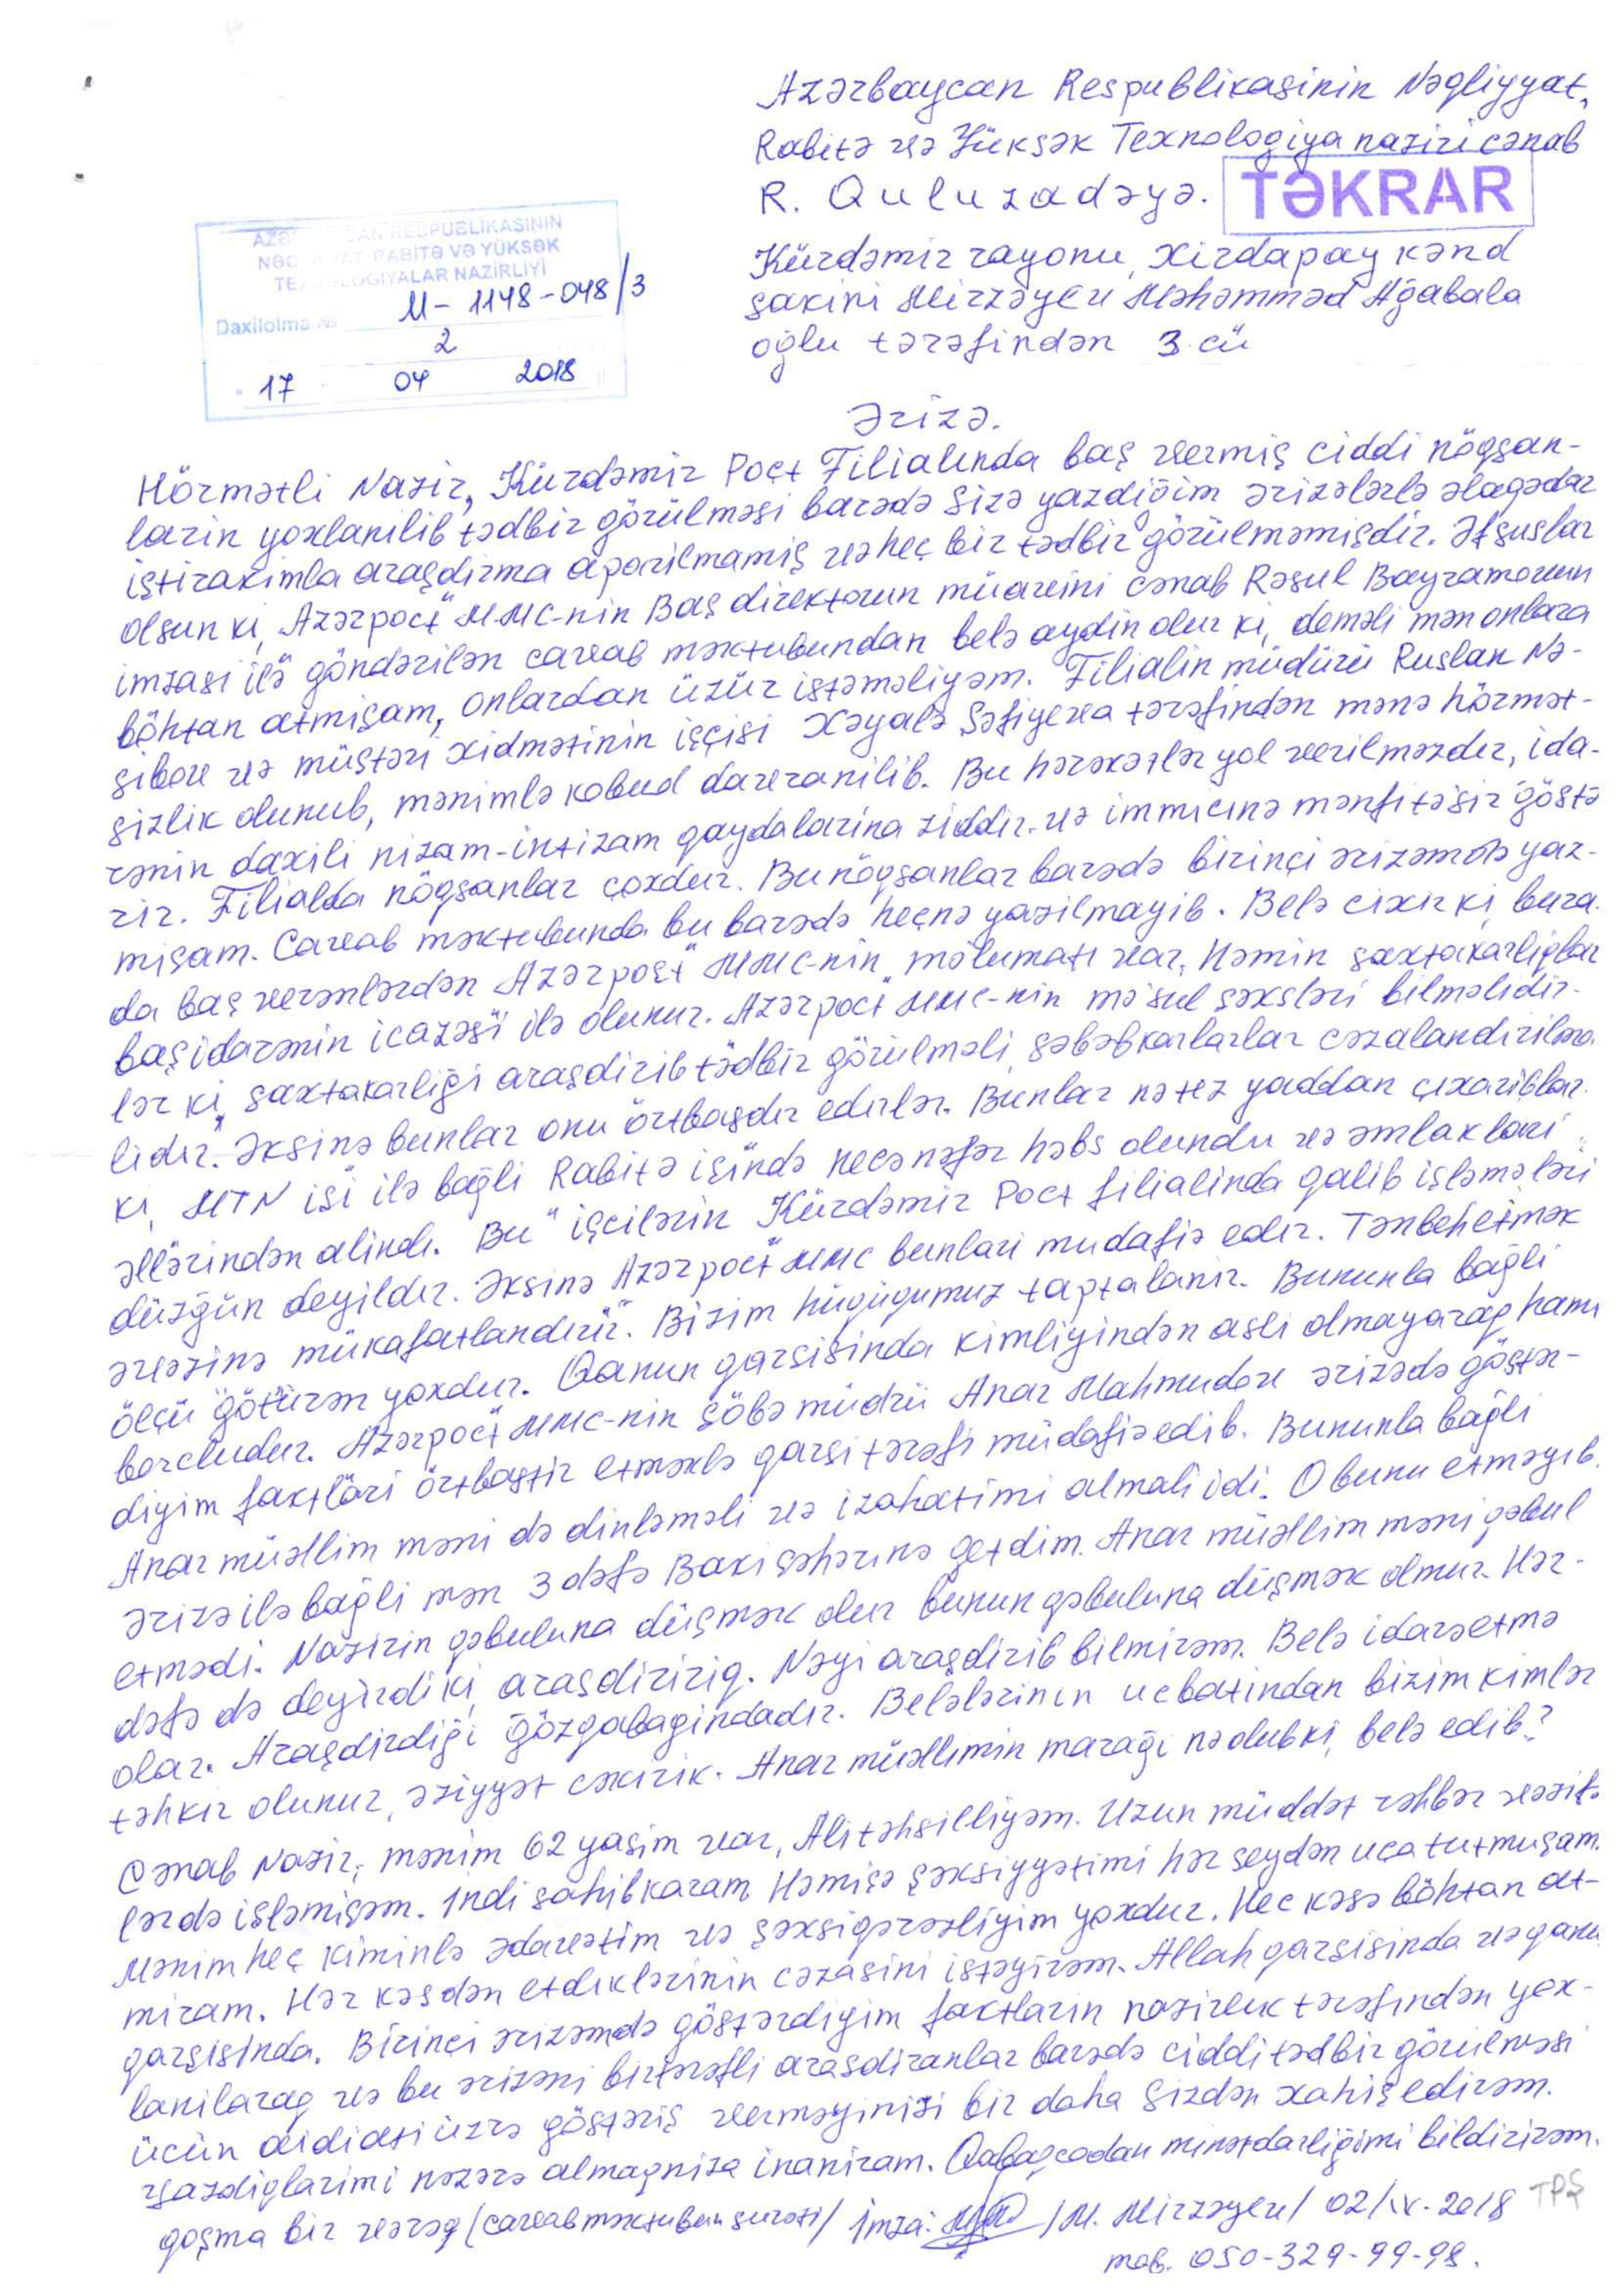 Azərbaycan Respublikasinin Nəqliyyat,
Rabitə və Yüksək Texnologiya naziri cənab
R. Quluzadəyə.
TƏKRAR
AZƏ CAN RESPUBLİKASININ
NƏQ AT RABİTƏ VƏ YÜKSƏK
TE LOGİYALAR NAZİRLİYİ
Daxilolma № M-1148-048/3
2
17 04 2018
Kürdəmir rayonu, Xirdapay kənd
sakini Mirzəyev Məhəmməd Ağabala
oğlu tərəfindən 3.cü
Ərizə.
Hörmətli Nazir, Kürdəmir Poçt Filialında baş vermiş ciddi nöqsan-
larin yoxlanilib tədbir görülməsi barədə Sizə yazdiğim ərizələrlə əlaqədar
iştirakimla araşdirma aparilmamiş və heç bir tədbir görülməmişdir. Əfsuslar
olsun ki, Azərpoçt" MMC-nin Baş direktorun müavini cənab Rəsul Bayramovun
imzasi ilə göndərilən cavab məktubundan belə aydin olur ki, deməli mən onlara
böhtan atmişam, onlardan üzür istəməliyəm. Filialin müdürü Ruslan Nə-
sibov və müştəri xidmətinin işçisi Xəyalə Səfiyeva tərəfindən mənə hörmət-
sizlik olunub, mənimlə kobud davranilib. Bu hərəkətlər yol verilməzdir, ida-
rənin daxili nizam-intizam qaydalarina ziddir və immicinə mənfi təsir göstə
rir. Filialda nöqsanlar çoxdur. Bu nöqsanlar barədə birinçi ərizəmdə yaz-
mişam. Cavab məktubunda bu barədə heçnə yazilmayib. Belə cixir ki, bura-
da baş verənlərdən Azərpoçt" MMC-nin məlumatı var, Həmin saxtakarliqlar
baş idarənin icazəsi ilə olunur. Azərpoct" MMC-nin mə'sul şəxsləri bilməlidir-
lər ki, saxtakarliği araşdirib tədbir görülməli, səbəbkarlarlar cəzalandirilma-
lidır. Əksinə bunlar onu örtbasdır edirlər. Bunlar nə tez yaddan çıxariblar
ki, MTN işi ilə bağli Rabitə işində necə nəfər həbs olundu və əmlaklari
əllərindən alindı. Bu işcilərin Kürdəmir Poct filialinda qalib işləmələri
düzgün deyildır. Əksinə Azərpoct" MMC bunlari mudafiə edir. Tənbeh etmək
əvəzinə mükafatlandırır. Bizim hüququmuz taptalanir. Bununla bağli
ölçü götürən yoxdur. Qanun qarsisinda kimliyindən asli olmayaraq hamı
borcludur. Azərpoçt" MMC-nin şöbə müdrü Anar Mahmudov ərizədə göstər-
diyim faktlari örtbastir etməklə qarsi tərəfi müdafiə edib. Bununla bağli
Anar müəllim məni də dinləməli və izahatimi almali idi. O bunu etməyıb.
Ərizə ilə bağli mən 3 dəfə Baki şəhərinə getdim. Anar müəllim məni qəbul
etmədi. Nazirin qəbuluna düşmək olur bunun qəbuluna düşmək olmur. Hər-
dəfə də deyirdi ki, arasdiririq. Nəyi araşdirib bilmirəm. Belə idarəetmə
olar. Araşdirdiği gözqabagindadır. Belələrinin ucbatindan bizim kimlər
təhkir olunur, əziyyət cəkirik. Anar müəllimin maraği nə olub ki, belə edib?
Cənab Nazir, mənim 62 yaşim var, Ali təhsilliyəm. Uzun müddət rəhbər vəzifə
lərdə işləmişəm. İndi sahibkaram Həmişə şəxsiyyətimi hər şeydən uca tutmuşam.
Mənim heç kiminlə ədavətim və şəxsi qərəzliyim yoxdur. Hec kəsə böhtan at-
miram. Hər kəsdən etdıklərinin cəzasini istəyirəm. Allah qarsisinda və qanu
qarşisinda. Birinçi ərizəmdə göstərdiyim faktlarin nazirlık tərəfındən yox-
lanilaraq və bu ərizəni birtərəfli arasdiranlar barədə ciddi tədbir görülməsi
ücün aidiati üzrə göstəriş verməyinizi bir daha Sizdən xahiş edirəm.
Yazdiqlarimi nəzərə almaqniza inaniram. Qabaqcadan minətdarliğimi bildirirəm.
qoşma bir vərəq /cavab məktubun surəti/ İmza: /M. Mirzəyev/ 02/ıv-2018
mob. 050-329-99-98.